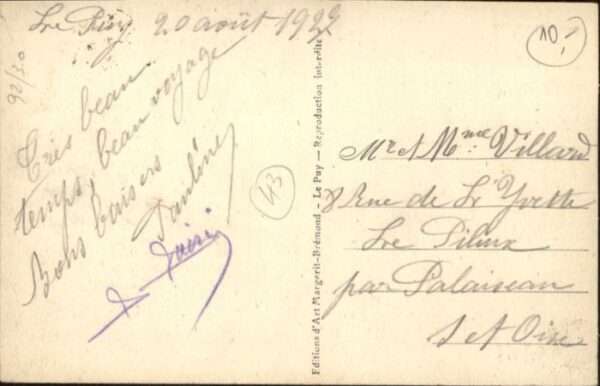 Le Puy 20 août 1922
92/30
Très beau
temps, beau voyage
Bons baisers
Pauline
43
Editions d'Art Margerit-Brémond - Le Puy — Reproduction Interdite
10,
Mr et Mme Villard
8 Rue de L'Yvette
Le Pileux
par Palaiseau
S et Oise